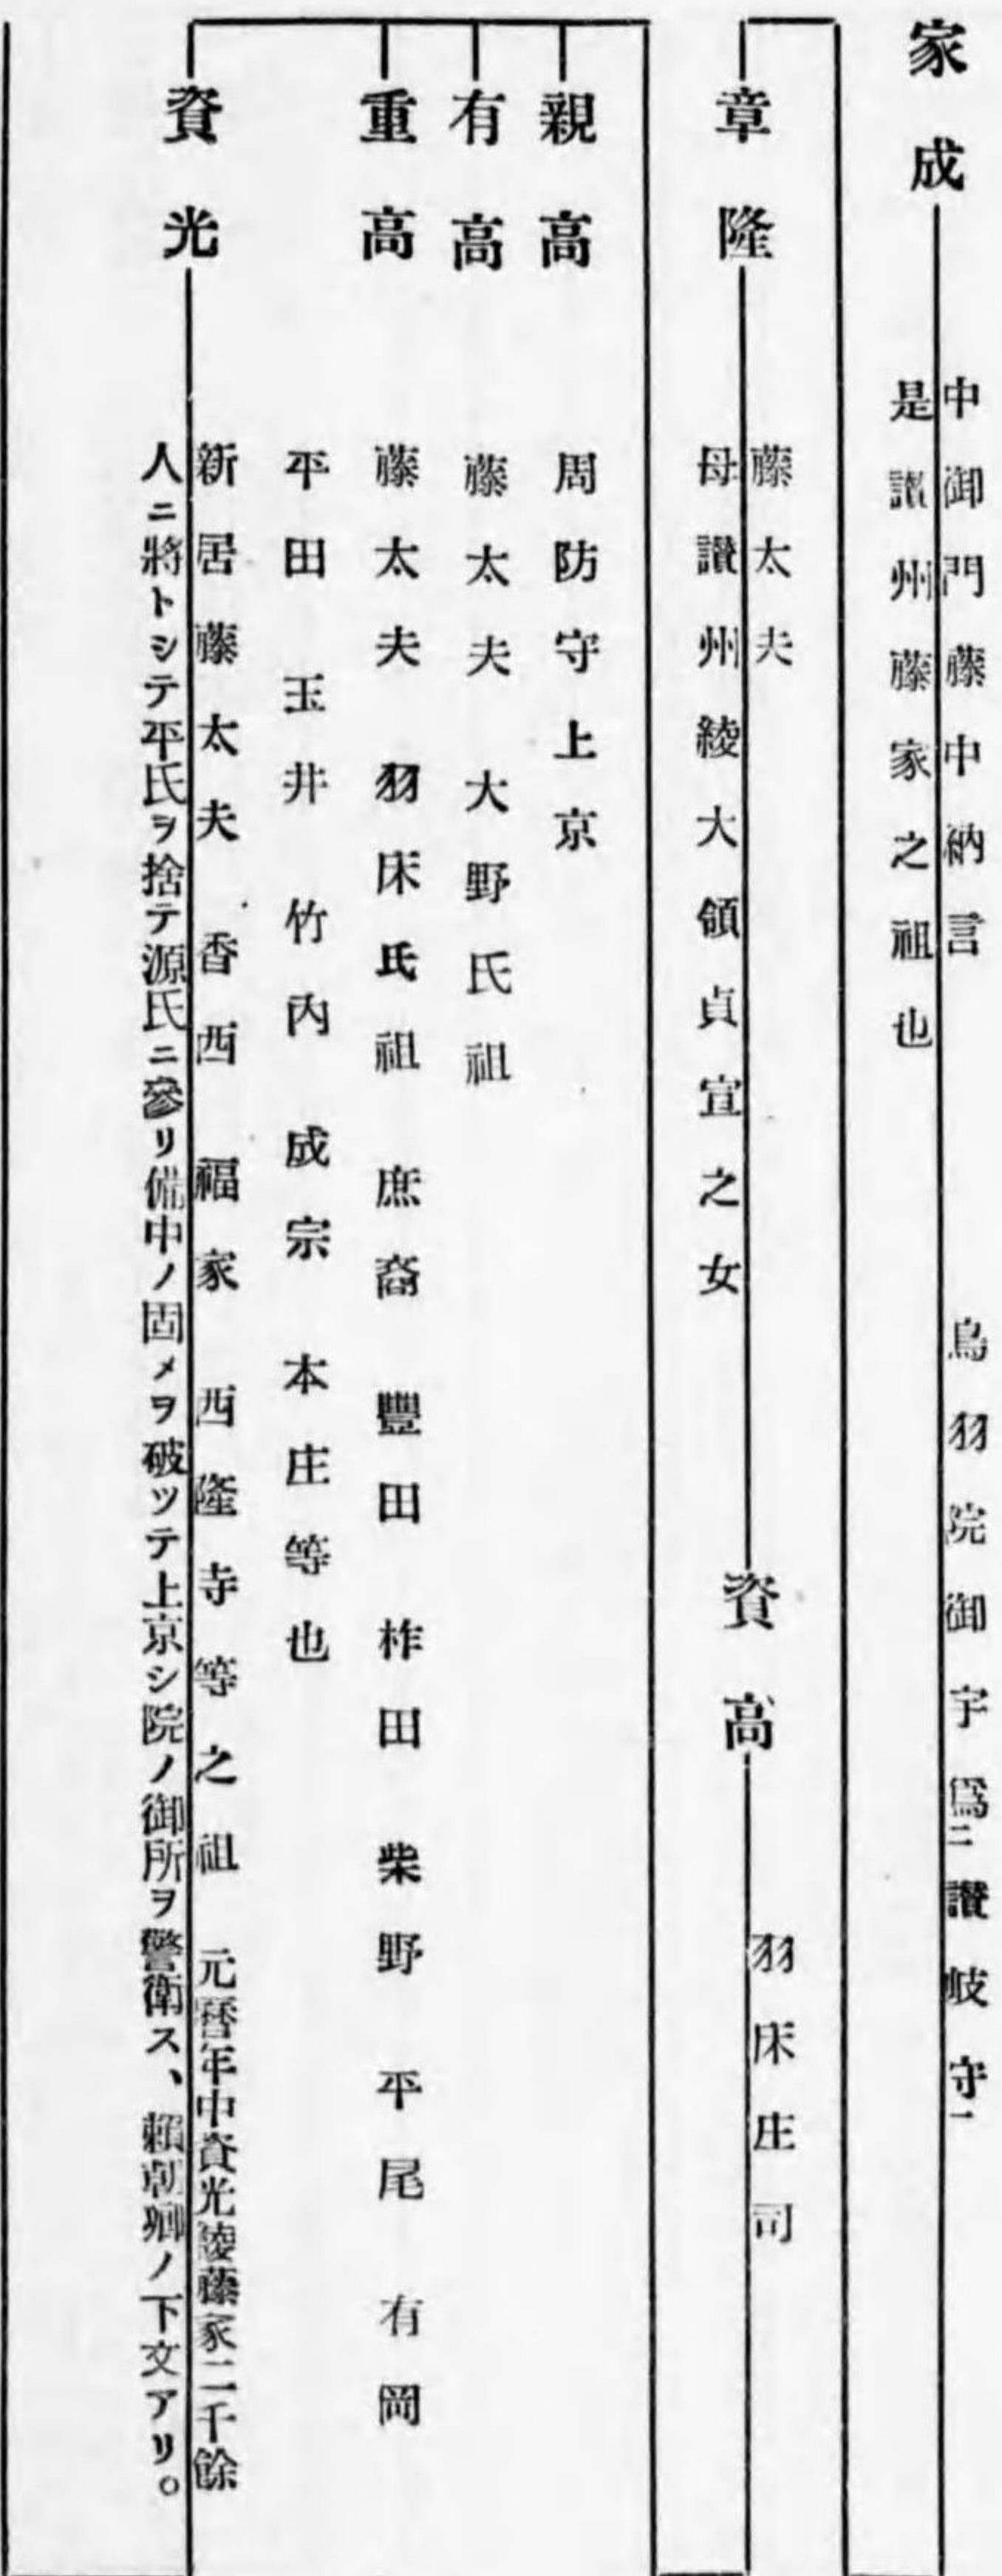 家成
中御門藤中納言 鳥羽院御宇爲二讃岐守一
是讃州藤家之祖也
章隆
藤太夫
母讃州綾大領貞宣之女
資高
羽床庄司
親高 周防守上京
有高 藤太夫 大野氏祖
重高 藤太夫 羽床氏祖 庶裔 豐田 柞田 柴野 平尾 有岡
平田 玉井 竹内 成宗 本庄等也
資光
新居藤太夫 香西 福家 西隆寺等之祖 元曆年中資光綾藤家二千餘
人ニ將トシテ平氏ヲ捨テ源氏ニ參リ備中ノ固メヲ破ツテ上京シ院ノ御所ヲ警衛ス、賴朝卿ノ下文アリ。